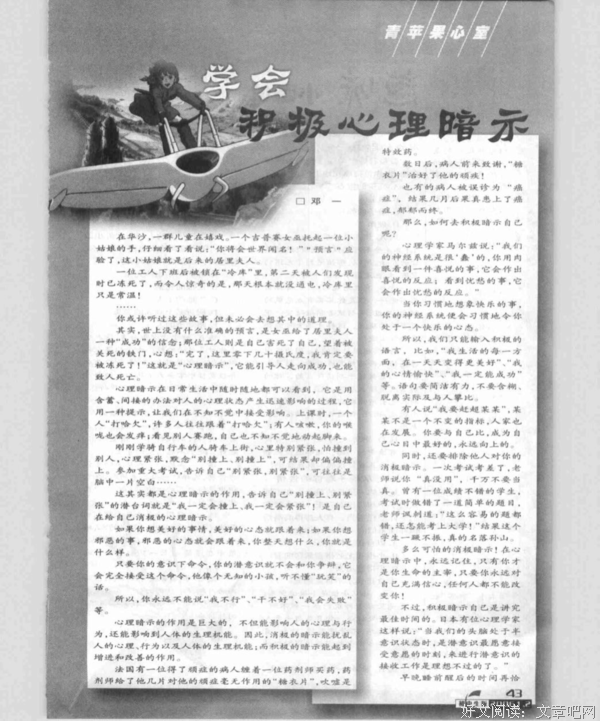 青苹果心室
学会
积极心理暗示
□邓 一
在华沙,一群儿童在嬉戏。一个吉普赛女巫托起一位小
姑娘的手,仔细看了看说:“你将会世界闻名!”“预言”应
验了,这小姑娘就是后来的居里夫人。
一位工人下班后被锁在“冷库”里,第二天被人们发现
时已冻死了,而令人惊奇的是,那天根本就没通电,冷库里
只是常温!
……
你或许听过这些故事,但未必会去想其中的道理。
其实,世上没有什么准确的预言,是女巫给了居里夫人
一种“成功”的信念;那位工人则是自己害死了自己,望着被
关死的铁门,心想:“完了,这里零下几十摄氏度,我肯定要
被冻死了!”这就是“心理暗示”,它能引导人走向成功,也能
致人死亡。
心理暗示在日常生活中随时随地都可以看到,它是用
含蓄、间接的办法对人的心理状态产生迅速影响的过程,它
用一种提示,让我们在不知不觉中接受影响。上课时,一个
人“打哈欠”,许多人往往跟着“打哈欠”;有人咳嗽,你的喉
咙也会发痒;看见别人赛跑,自己也不知不觉地动起脚来。
刚刚学骑自行车的人骑车上街,心里特别紧张,怕撞到
别人,心理紧张,默念“别撞上、别撞上”,可结果却偏偏撞
上。参加重大考试,告诉自己“别紧张,别紧张”,可往往是
脑中一片空白……
这其实都是心理暗示的作用,告诉自己“别撞上、别紧
张”的潜台词就是“我一定会撞上、我一定会紧张”!是自己
在给自己消极的心理暗示。
如果你想美好的事情,美好的心态就跟着来;如果你想
邪恶的事,邪恶的心态就会跟着来,你整天想什么,你就是
什么样。
只要你的意识下命令,你的潜意识就不会和你争辩,它
会完全接受这个命令,他像个无知的小孩,听不懂“玩笑”的
话。
所以,你永远不能说“我不行”、“干不好”、“我会失败”
等。
心理暗示的作用是巨大的,不仅能影响人的心理与行
为,还能影响到人体的生理机能。因此,消极的暗示能扰乱
人的心理、行为以及人体的生理机能;而积极的暗示能起到
增进和改善的作用。
法国有一位得了顽症的病人缠着一位药剂师买药,药
剂师给了他几片对他的顽症毫无作用的“糖衣片”,吹嘘是
特效药。
数日后,病人前来致谢,“糖
衣片”治好了他的顽疾!
也有的病人被误诊为“癌
症”,结果几月后果真患上了癌
症,郁郁而终。
那么,如何去积极暗示自己
呢?
心理学家马尔兹说:“我们
的神经系统是很‘蠢’的,你用肉
眼看到一件喜悦的事,它会作出
喜悦的反应;看到忧愁的事,它
会作出忧愁的反应。”
当你习惯地想象快乐的事,
你的神经系统便会习惯地令你
处于一个快乐的心态。
所以,我们只能输入积极的
语言,比如,“我生活的每一方
面,在一天天变得更美好”、“我
的心情愉快”、“我一定能成功”
等。语句要简洁有力,不要含糊、
脱离实际及与人攀比。
有人说“我要赶超某某”,某
某不是一个不变的指标,人家也
在发展。你要与自己比,成为自
己心目中最好的,永远向上的。
同时,还要排除他人对你的
消极暗示。一次考试考差了,老
师说你“真没用”,千万不要当
真。曾有一位成绩不错的学生,
考试时做错了一道简单的题目,
老师讽刺道:“这么容易的题都
错,还怎能考上大学!”结果这个
学生一蹶不振,真的名落孙山。
多么可怕的消极暗示!在心
理暗示中,永远记住,只有你才
是你生命的主宰,只要你永远对
自己充满信心,任何人都不能改
变你!
不过,积极暗示自己是讲究
最佳时间的。日本有位心理学家
这样说:“当我们的头脑处于半
意识状态时,是潜意识最愿意接
受意愿的时刻,来进行潜意识的
接收工作是理想不过的了。”
早晚睡前醒后的时间再恰
43
好文阅读:文章吧网